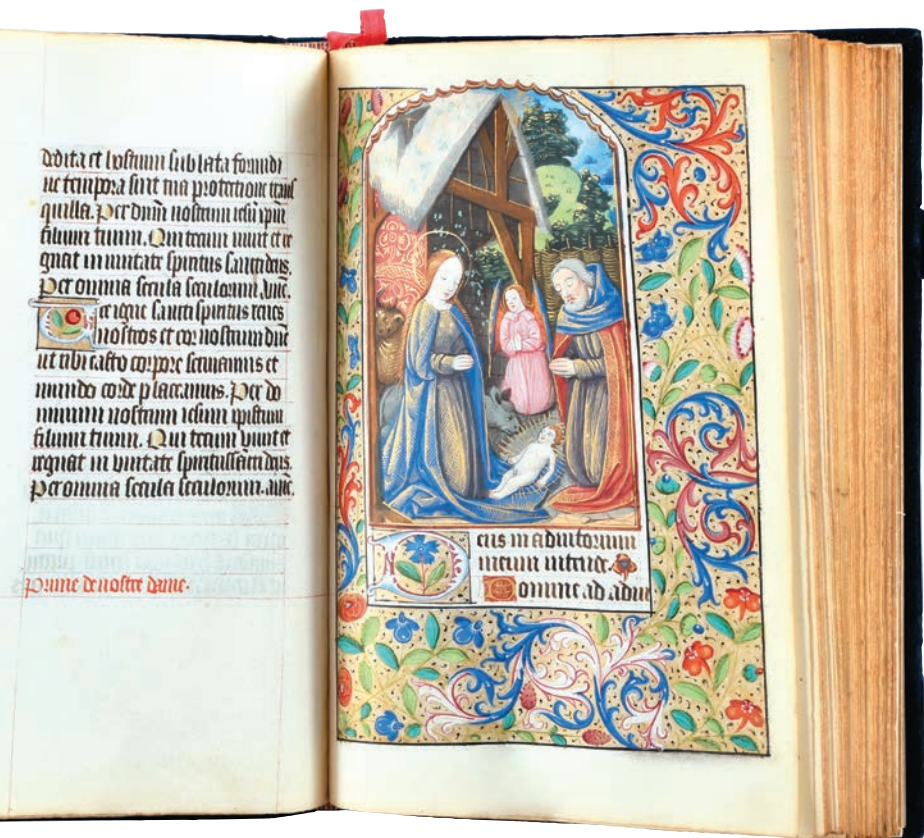 dedita et hostium sublata formidi
ne tempora sint tua protectione tran
quilla. Per dnm nostrum iesu xpm
filium tuum. Qui tecum viuit et re
gnat in vnitate spiritus sancti deus.
Per omnia secula seculorum. Amē.
Ure igne sancti spiritus renes
nostros et cor nostrum dn̄e
ut tibi casto corpore seruiamus et
mundo corde placeamus. Per do
minum nostrum iesum xpistum
filium tuum. Qui tecum viuit et
regnat in vnitate spiritus sancti deus.
Per omnia secula seculorum. amē.
Prime de nostre dame.
Deus in adiutorium
meum intende.
Domine ad adiu